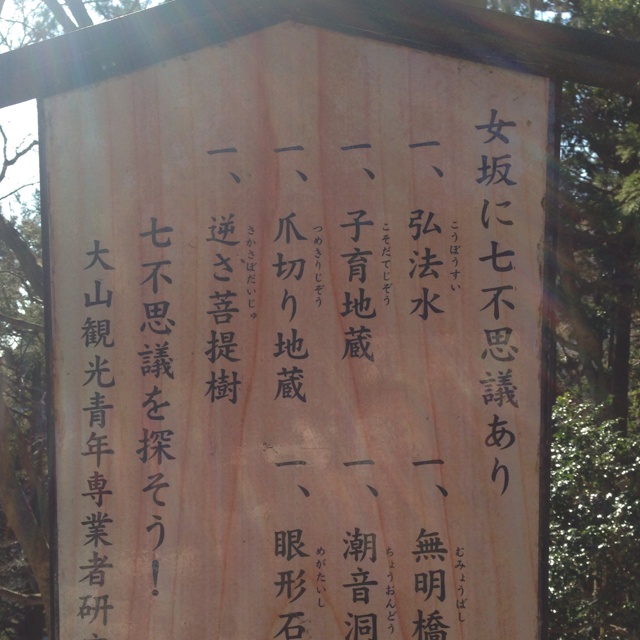 女坂に七不思議あり
一、弘法水
こうぼうすい
一、無明橋
むみょうばし
一、子育地蔵
こそだてじぞう
一、潮音洞
ちょうおんどう
一、爪切り地蔵
つめきりじぞう
一、眼形石
めがたいし
一、逆さ菩提樹
さかさぼだいじゅ
七不思議を探そう！
大山観光青年専業者研